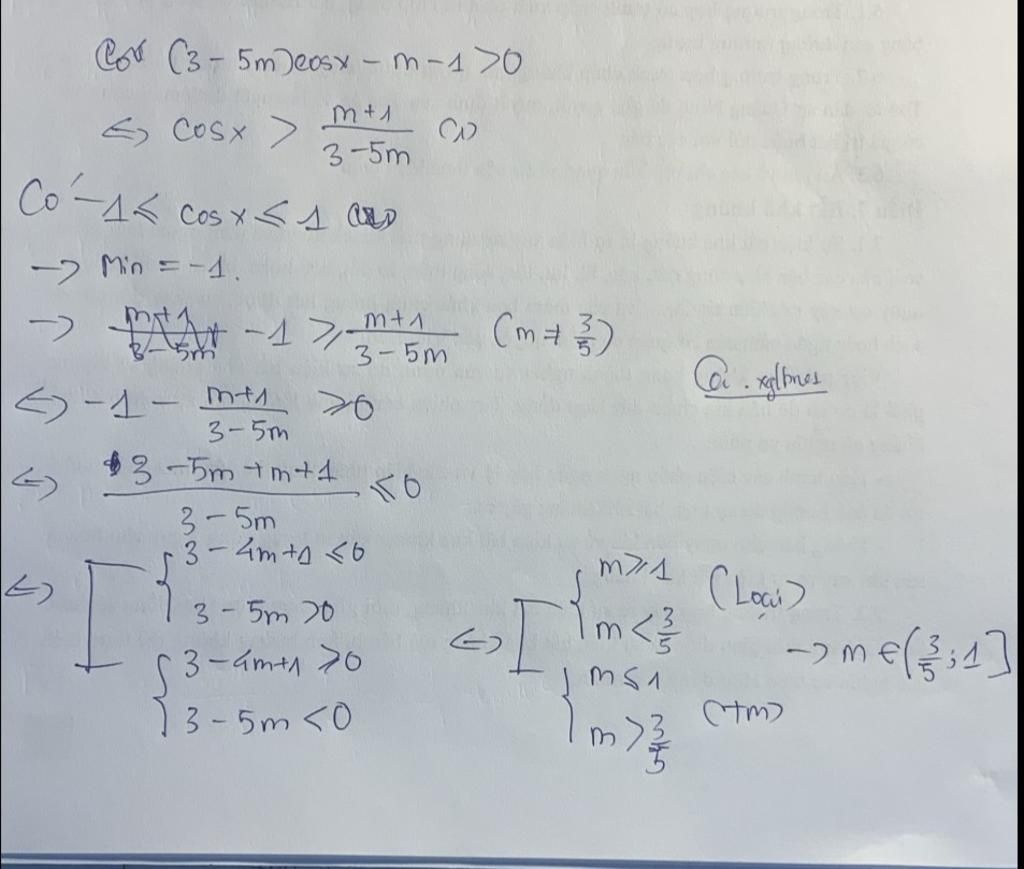 (3 - 5m)cosx - m - 1 > 0
<=> cosx > \frac{m+1}{3-5m} (1)
Có -1 ≤ cosx ≤ 1
-> Min = -1.
-> -1 ≥ \frac{m+1}{3-5m} (m ≠ \frac{3}{5})
<=> -1 - \frac{m+1}{3-5m} ≥ 0
<=> \frac{3-5m+m+1}{3-5m} ≤ 0
<=> [ { 3 - 4m + 1 ≤ 0
3 - 5m > 0
{ 3 - 4m + 1 ≥ 0
3 - 5m < 0
<=> [ { m ≥ 1
m < \frac{3}{5} (Loại)
{ m ≤ 1
m > \frac{3}{5} (tm)
-> m ∈ (\frac{3}{5}; 1]